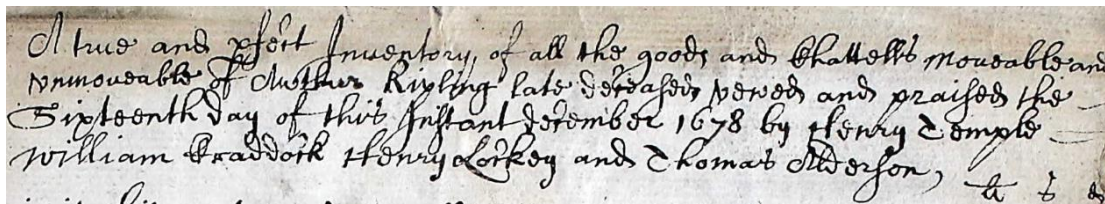 A true and pfect Inventory of all the goods and Chattells moveable and
vnmoveable of Arthur Kipling late deceased vewed and praised the
Sixteenth day of this Instant december 1678 by Henry Temple
William Craddock Henry Lockey and Thomas Alderson,
li s d